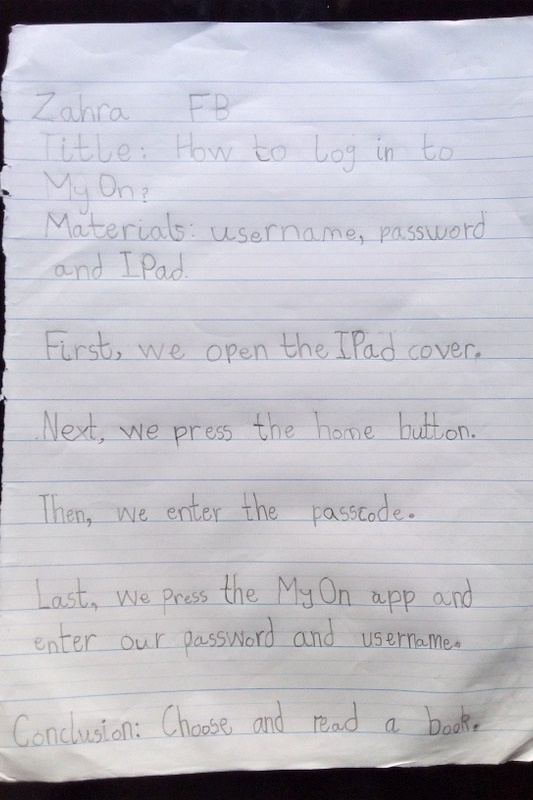 Zahra FB
Title: How to log in to
My On?
Materials: username, password
and IPad.
First, we open the IPad cover.
Next, we press the home button.
Then, we enter the passcode.
Last, we press the My On app and
enter our password and username.
Conclusion: Choose and read a book.